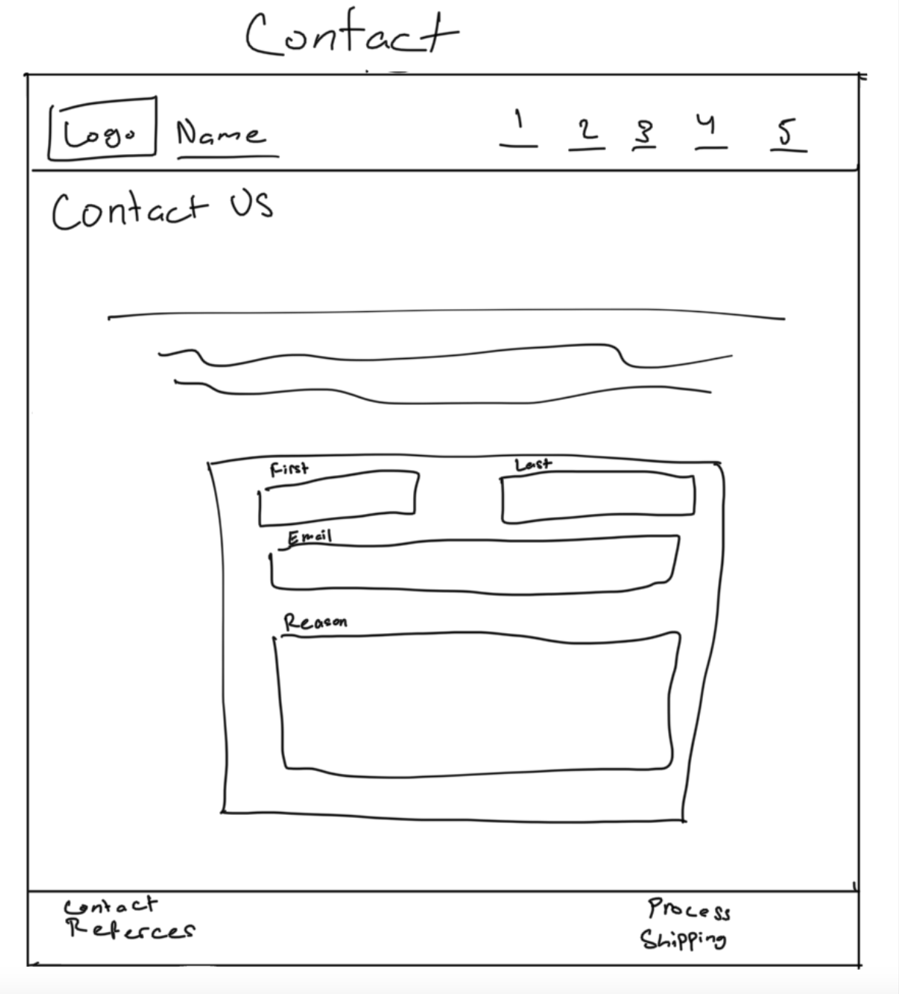 Contact
Logo Name 1 2 3 4 5
Contact Us
First Last
Email
Reason
Contact Process
Referces Shipping